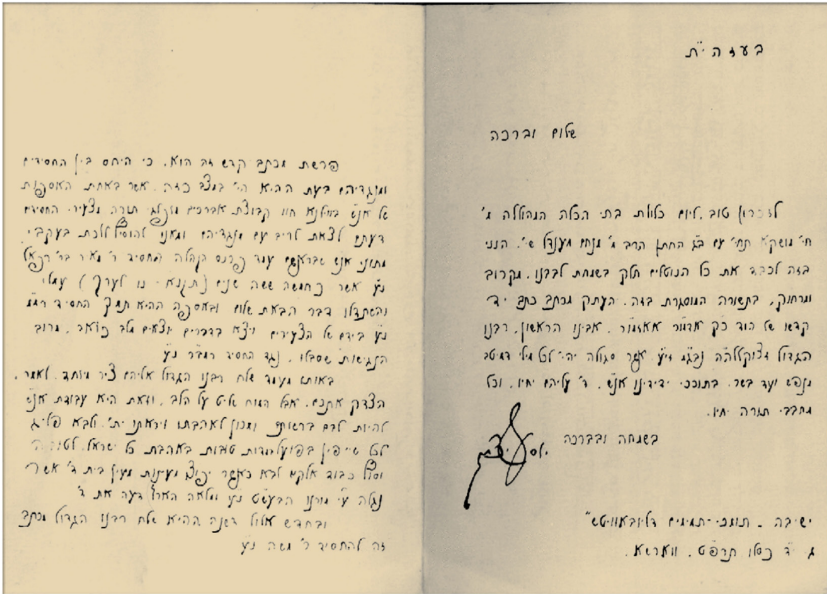 בעזהי״ת
שלום וברכה
לזכרון טוב, ליום כלולת בתי הכלה המהוללה מ׳
חי׳ מושקא תחי׳ עם ב״ג החתן הרב מ׳ מנחם מענדל שי׳. הנני
בזה לכבד את כל הנוטלים חלק בשמחת לבבנו, מקרוב
ומרחוק, בתשורה המוסגרת בזה. העתק מכתב כתב יד
קדשו של הוד כ״ק אדמו״ר אאזמו״ר. אבינו הראשון, רבנו
הגדול זצוקללה״ה נבג״מ זי״ע. אשר סגולה יהי׳ לכל מילי דמיטב
מנפש ועד בשר. בתוככי ידידינו אנ״ש. ד׳ עליהם יחיו. וכל
מחבבי תורה יחיו.
בשמחה ובברכה
ישיבה - תומכי-תמימים דליובאוויטש״
ג׳ י״ד כסלו תרפ״ט. ווארשא.
פרשת מכתב קדש זה הוא, כי היחס בין החסידים
ומנגדיהם בעת ההיא הי׳ במצב כזה. אשר באחת האספות
של אנ״ש בווילנא חוו קבוצת אברכים מופלגי תורה מצעירי החסידים
דעתם לצאת לריב עם מנגדיהם ומאנו להוסיף ללכת בעקבי
מתוני אנ״ש שבראשם עמד פרנס הקהלה החסיד ר׳ מאיר בר׳ רפאל
נ״ע אשר כחמשה ששה שנים (תקנ״א - נו לערך) עמלו
והשתדלו דבר הבאת שלום ובאספה ההיא תמך החסיד
נ״ע בידם של הצעירים ויצא בדברים יוצאים מלב כואב, מרוב
הנגישות שסבלו, נגד החסיד רמב״ר נ״ע
באותו מעמד שלח רבנו הגדול אליהם ציר מיוחד. לאמר.
הצדק אתכם. אבל המוח שליט על הלב. וזאת היא עבודת אנ״ש
להיות לבם ברשותם ומכון לאהבתו ויראתו ית׳. ולבא
לכל בפועל טובות באהבת כל ישראל.
כבוד אלקים לבא כאשר יפוצו מעינות מעין בית ד׳ אשר
נגלה ע״י מורנו הבעש״ט נ״ע ומלאה הארץ דעה את ד׳
ובחדש אלול דשנה ההיא שלח רבנו הגדול מכתב
זה להחסיד ר׳ משה נ״ע